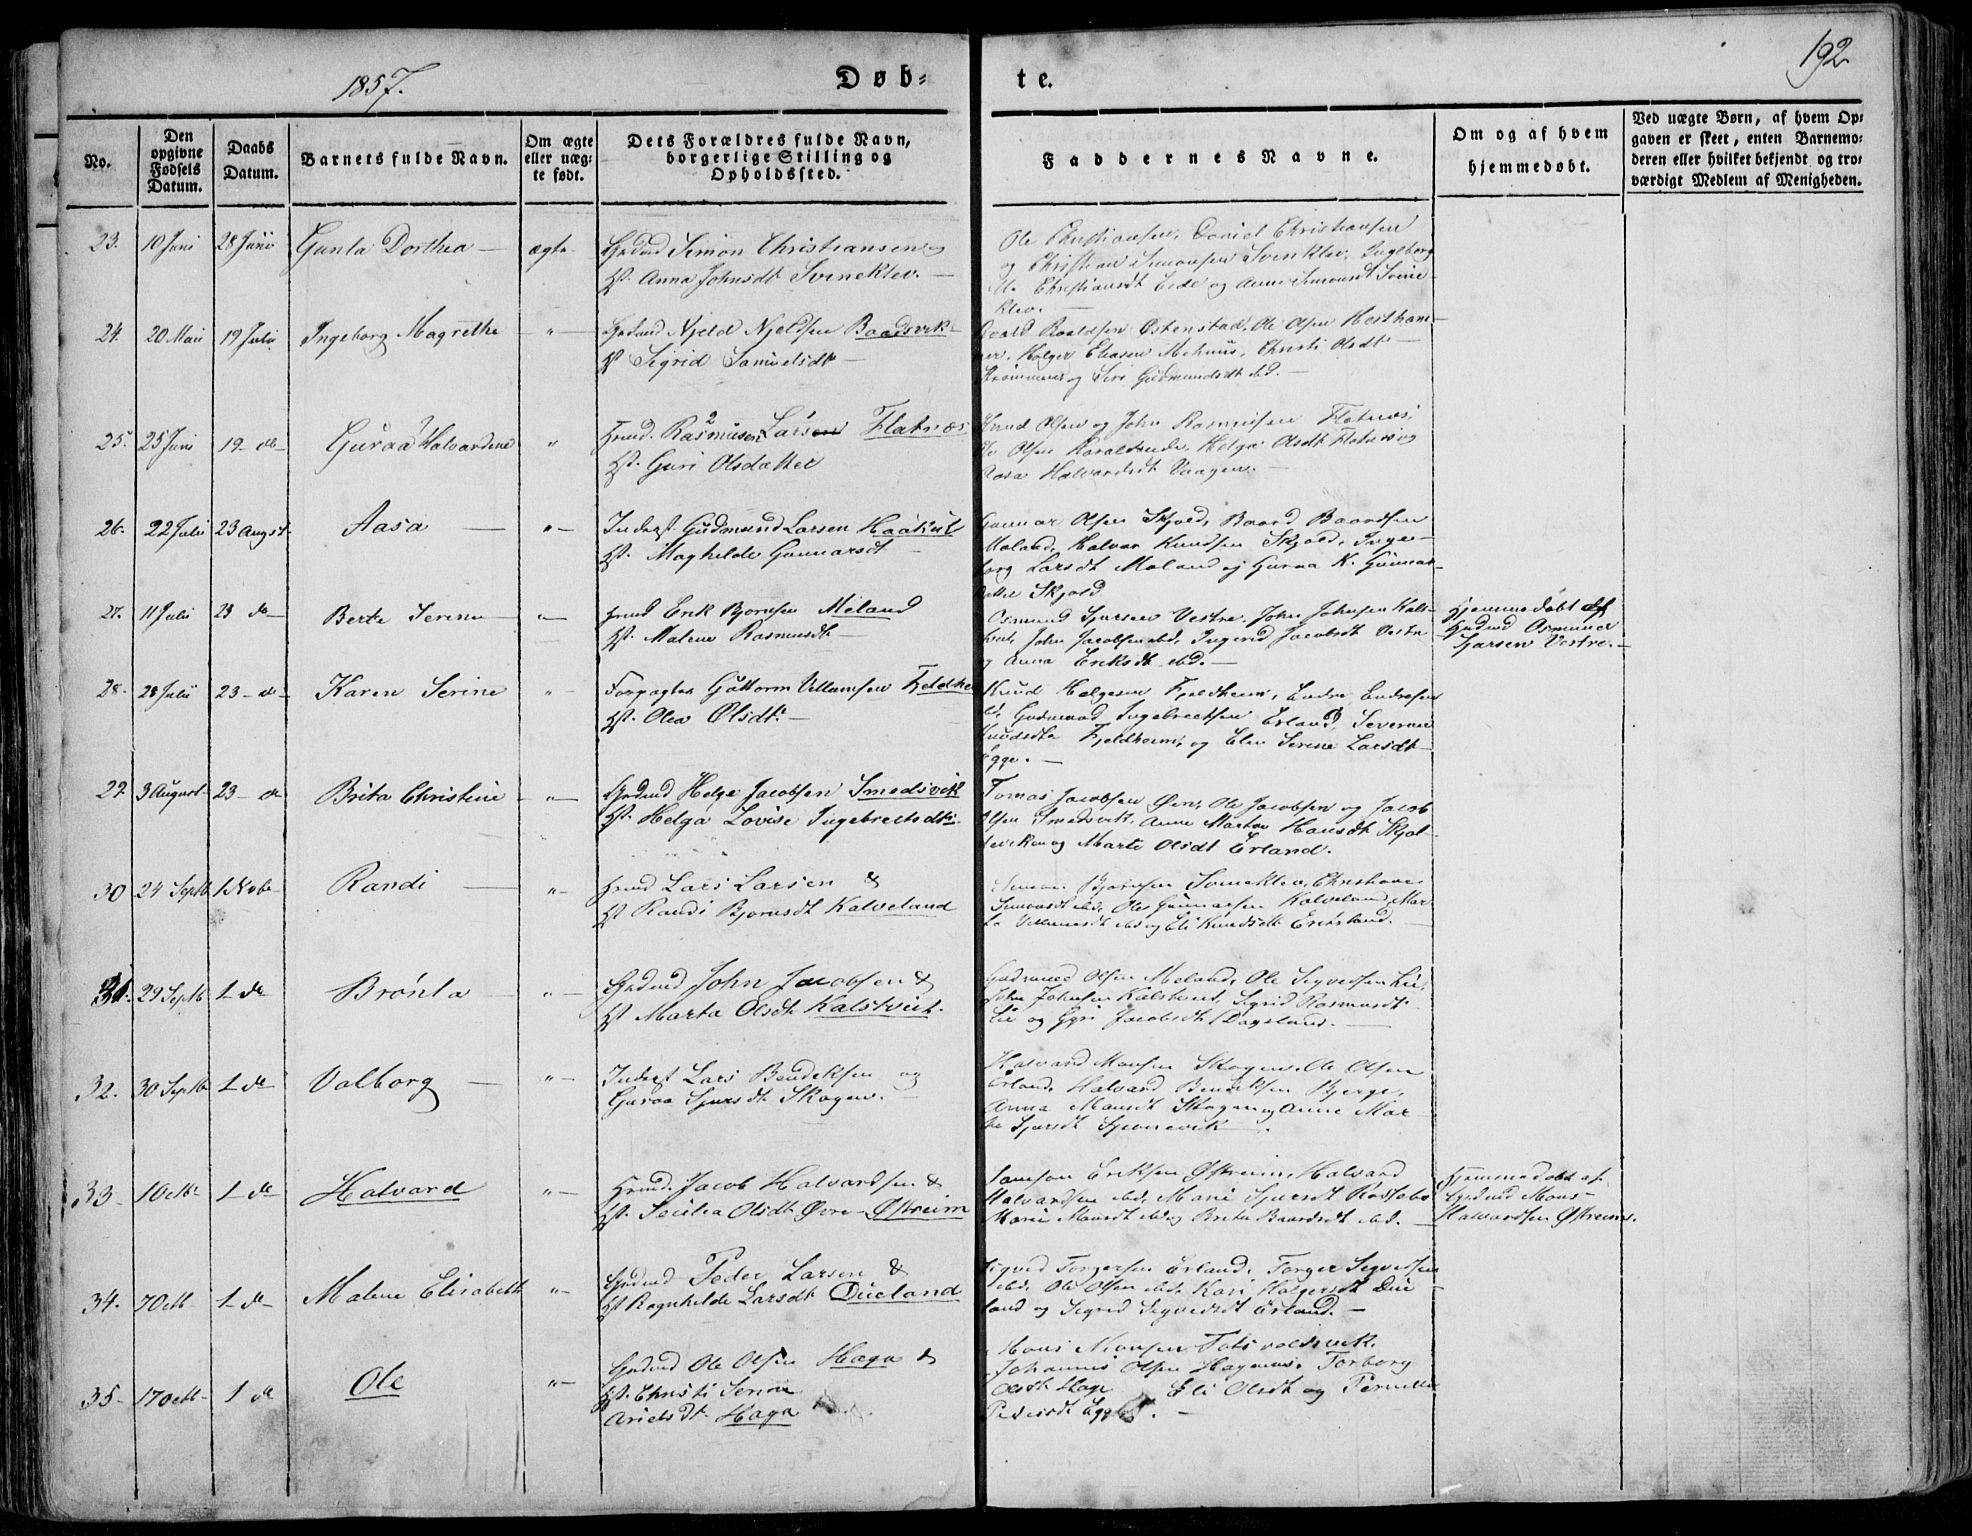 1857.
Døb-
te.
192
No.
Den opgivne Fødsels Datum.
Daabs Datum.
Barnets fulde Navn.
Om ægte eller uæg-te født.
Dets Forældres fulde Navn, borgerlige Stilling og Opholdssted.
Faddernes Navne.
Om og af hvem hjemmedøbt.
Ved uægte Børn, af hvem Op-gaven er skeet, enten Barnemo-deren eller hvilket bekjendt og tro-værdigt Medlem af Menigheden.
23. 10 Juni 28 Juni Gunla Dorthea ægte Grdmd Simon Christiansen og
Hst. Anna Johnsdt Svineklev.
Ole Christiansen, Daniel Christiansen
og Christian Simonsen Svineklev, Ingeborg
Christiansdt Eide og Anne Simonsdt Svine
klev.
24. 20 Mai 19 Juli Ingeborg Magrethe " Grdmd Njeld Njeldsen Baadsvik
Hst Sigrid Samuelsdt
Roald Roaldsen Østenstad, Ole Olsen Hestham-
mer, Holger Eliasen Mehuus, Christi Olsdt
og Siri Gudmundsdt ibd.
25. 25 Juni 19 do Guroa Halvardine " Hmd. Rasmus Larsen Flatnæs
Hst. Guri Olsdatter
Knud Olsen og John Rasmussen Flatnæs,
Ole Olsen Helga Olsdt Flatnæs og
Aasa Halvardsdt Vaagen.
26. 22 Juli 23 August Aasa " Inderst Gudmund Larsen
Hst. Maghilde Gunnarsdt
Gunnar Olsen Skjold, Baard Baardsen
Moland, Halvor Knudsen Skjold, Inge-
borg Larsdt Moland og Guroa K. Gunnar-
datter Skjold
27. 11 Juli 23 do Berte Serine " Hmd Erik Bjornsen Meland
Hst. Malene Rasmusdt
Osmund Sjursen Vestre, John Johnsen Kals-
tveit, John Jacobsen ibd, Ingerid Jacobsdt Vestre
og Anna Eriksdt ibd.
Hjemmedøbt af
Grdmd Osmund
Sjursen Vestre.
28. 28 Juli 23 do Karen Serine " Forpagter Guttorm Villumsen Fjeldhei
Hst. Olea Olsdt.
Knud Helgesen Fjeldheim, Endre Endresen
ibd, Gudmund Ingebretsen Erland, Severine
Knudsdtr Fjeldheim, og Elen Serine Larsdt
Egge.
29 3 August 23 do Brita Christine " Grdmd Helge Jacobsen Smedsvik
Hst. Helga Lovise Ingebretsdtr.
Tomas Jacobsen Øen, Ole Jacobsen og Jacob
Olsen Smedsvik, Anne Marta Hansdt Skjol-
deviken og Marte Olsdt Erland.
30 24 Septb 1 Novbr Randi " Hmd Lars Larsen &
Hst Randi Bjornsdt Kalveland
Simon Bjornsen Svineklev, Christiane
Simonsdt ibd, Ole Gunnarsen Kalveland, Mar-
ta Villumsdt ibd og Eli Knudsdt Eriksland.
31. 29 Septb 1 do Brønla " Grdmd John Jacobsen &
Hst Marta Olsdt Kalstveit.
Gudmund Olsen Meland, Ole Sigvedsen Lie,
John Johnsen Kalstveit, Sigrid Rasmusdt
Lie og Gyri Jacobsdt Dagsland.
32. 30 Septb 1 do Valborg " Inderst Lars Bendiksen og
Guroa Sjursdt Skogen.
Halvard Monsen Skogen, Ole Olsen
Erland, Halvard Bendiksen Bjerge,
Anna Monsdt Skogen og Anne Mar-
Sjursdt
33 1 Octb 1 do Halvard " Hmd. Jacob Halvardsen &
Hst. Secilia Olsdt Øvre Østreim
Samson Eriksen Østreim, Halvard
Halvardsen ibd, Marie Sjursdt Rossebø
Marie Monsdt ibd og Brita Baardsdt ibd.
Hjemmedøbt af
Grdmd Mons
Halvardsen Østreim.
34. 7 Octb 1 do Malene Elisabeth " Grdmd Peder Larsen &
Hst Ragnhilde Larsdt Dueland
Sigved Torgersen Erland, Torger Sigvedsen
ibd, Ole Olsen ibd, Kari Holgersdt Due-
land og Sigrid Sigvedsdt Erland.
35. 17 Octb 1 do Ole " Grdmd Ole Olsen Haga &
Hst. Christi Serine
Arietsdt Haga
Mons Monsen
Johannes Olsen Torborg
Olsdt Haga Eli Olsdt og Pernille
Pedersdt Egge.